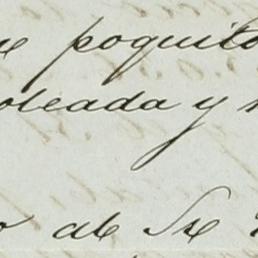 poquito
oleada y
o al Sr